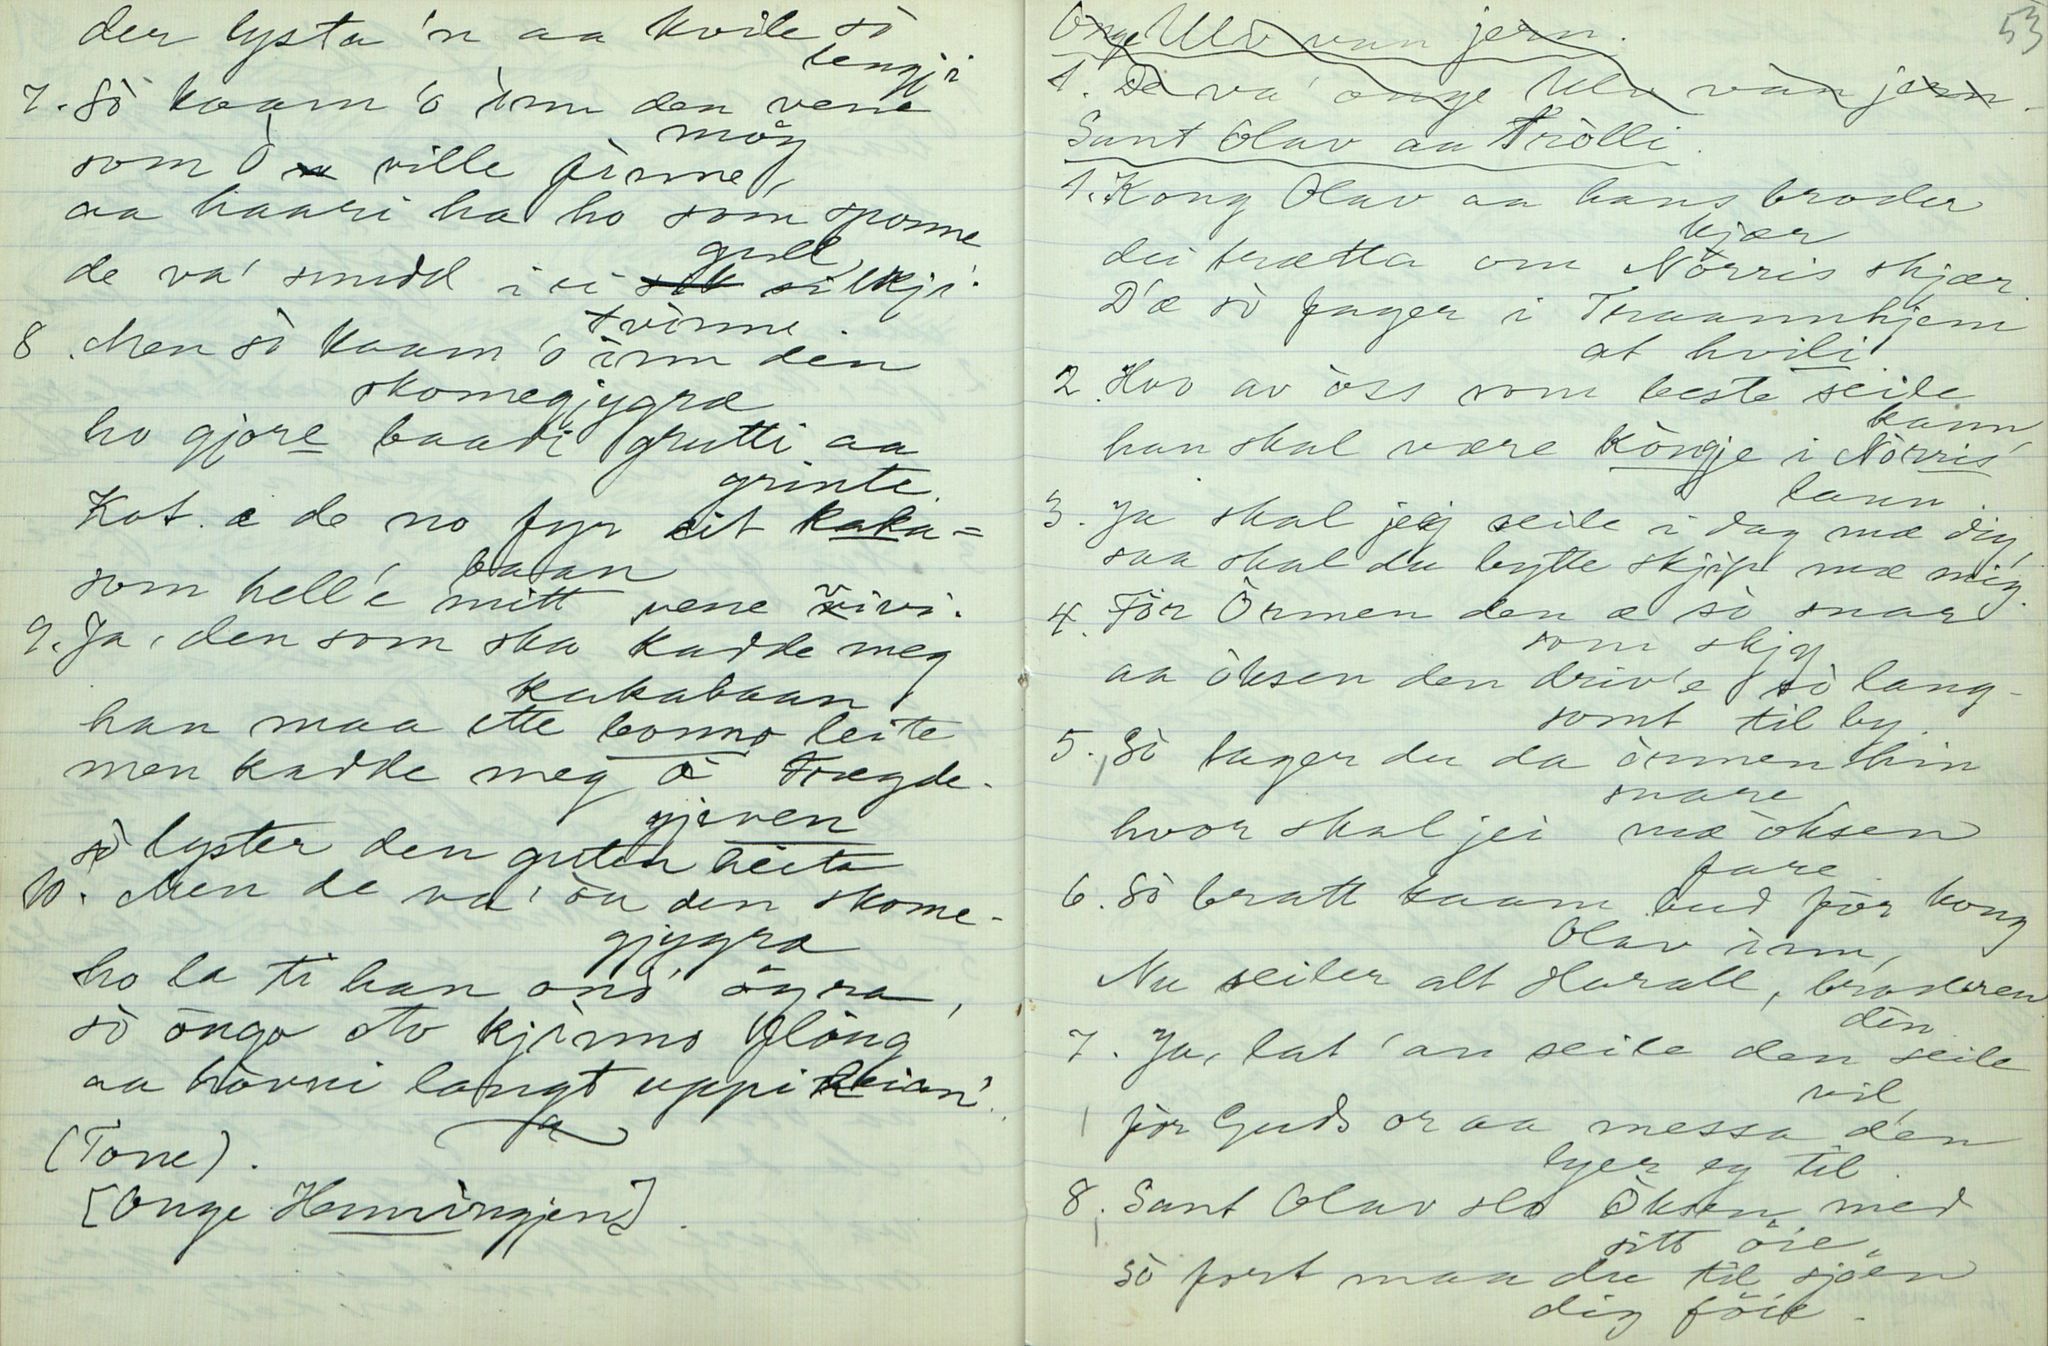 der lysta 'n aa kvile sò
lengji
7. Sò kaam 'o inn den vene
möy
som Ò ville finne,
aa haari ha ho som sponne
gull
de va' snudd i ei silkji-
tvinne.
8. Men sò kaam 'o inn den
skomegjygra
ho gjore baadi grutti aa
grinte.
Kot æ de no fyr eit kaka=
baan
som hell'e mitt vene vivi.
9. Ja, den som ska kadde meg
kakabaan,
han maa ette bonno leite
men kadde meg ò Frægde-
gjæven
sò lyster den guten heita
10. Men de va' òn den skome-
gjygra
ho la ti han ond' öyra,
sò òngo ov kjinno flòng
aa hòvni langt uppi heian'.
(Tone).
[Onge Hemmingjen].
53
Onge Ulv van jern.
1. De va' onge Ulv vàn jern.
Sant Olav aa Trölli.
1. Kong Olav aa hans broder
kjær
dei trætta om Nòrris skjær.
D'æ sò fager i Traannhjem
at hvili
2. Hvo av òss som beste seile
kann,
han skal være kòngje i Nòrris
lann.
3. Ja skal jeg seile i dag mæ dig,
saa skal du bytte skjip mæ mig.
4. För Òrmen den æ sò snar
som skjy
aa òksen den driv'e sò lang-
somt til by.
5. Sò tager du da òrmen hin
snare
hvor skal jei mæ òksen
fare.
6. Sò bratt kaam bud för kong
Olav inn,
Nu seiler alt Harall, broderen
din
7. Ja, lat 'an seile den seile
vil
för Guds or aa messa den
lyer eg til.
8. Sant Olav slo Òksen med
sitt öie,
Sò fort maa du til sjöen
dig föie.